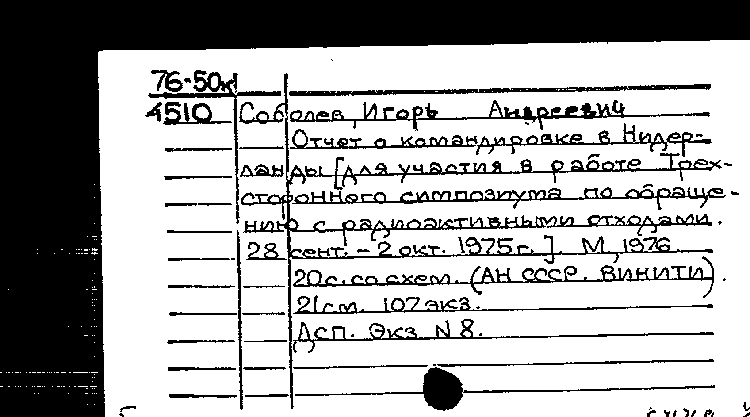 76-50к
4510 Соболев, Игорь Андреевич
Отчет о командировке в Нидер-
ланды [для участия в работе Трех-
стороннего симпозиума по обраще-
нию с радиоактивными отходами.
28 сент. - 2 окт. 1975 г.]. М, 1976.
20 с. со схем. (АН СССР. ВИНИТИ).
21 см. 107 экз.
Дсп. Экз. N 8.